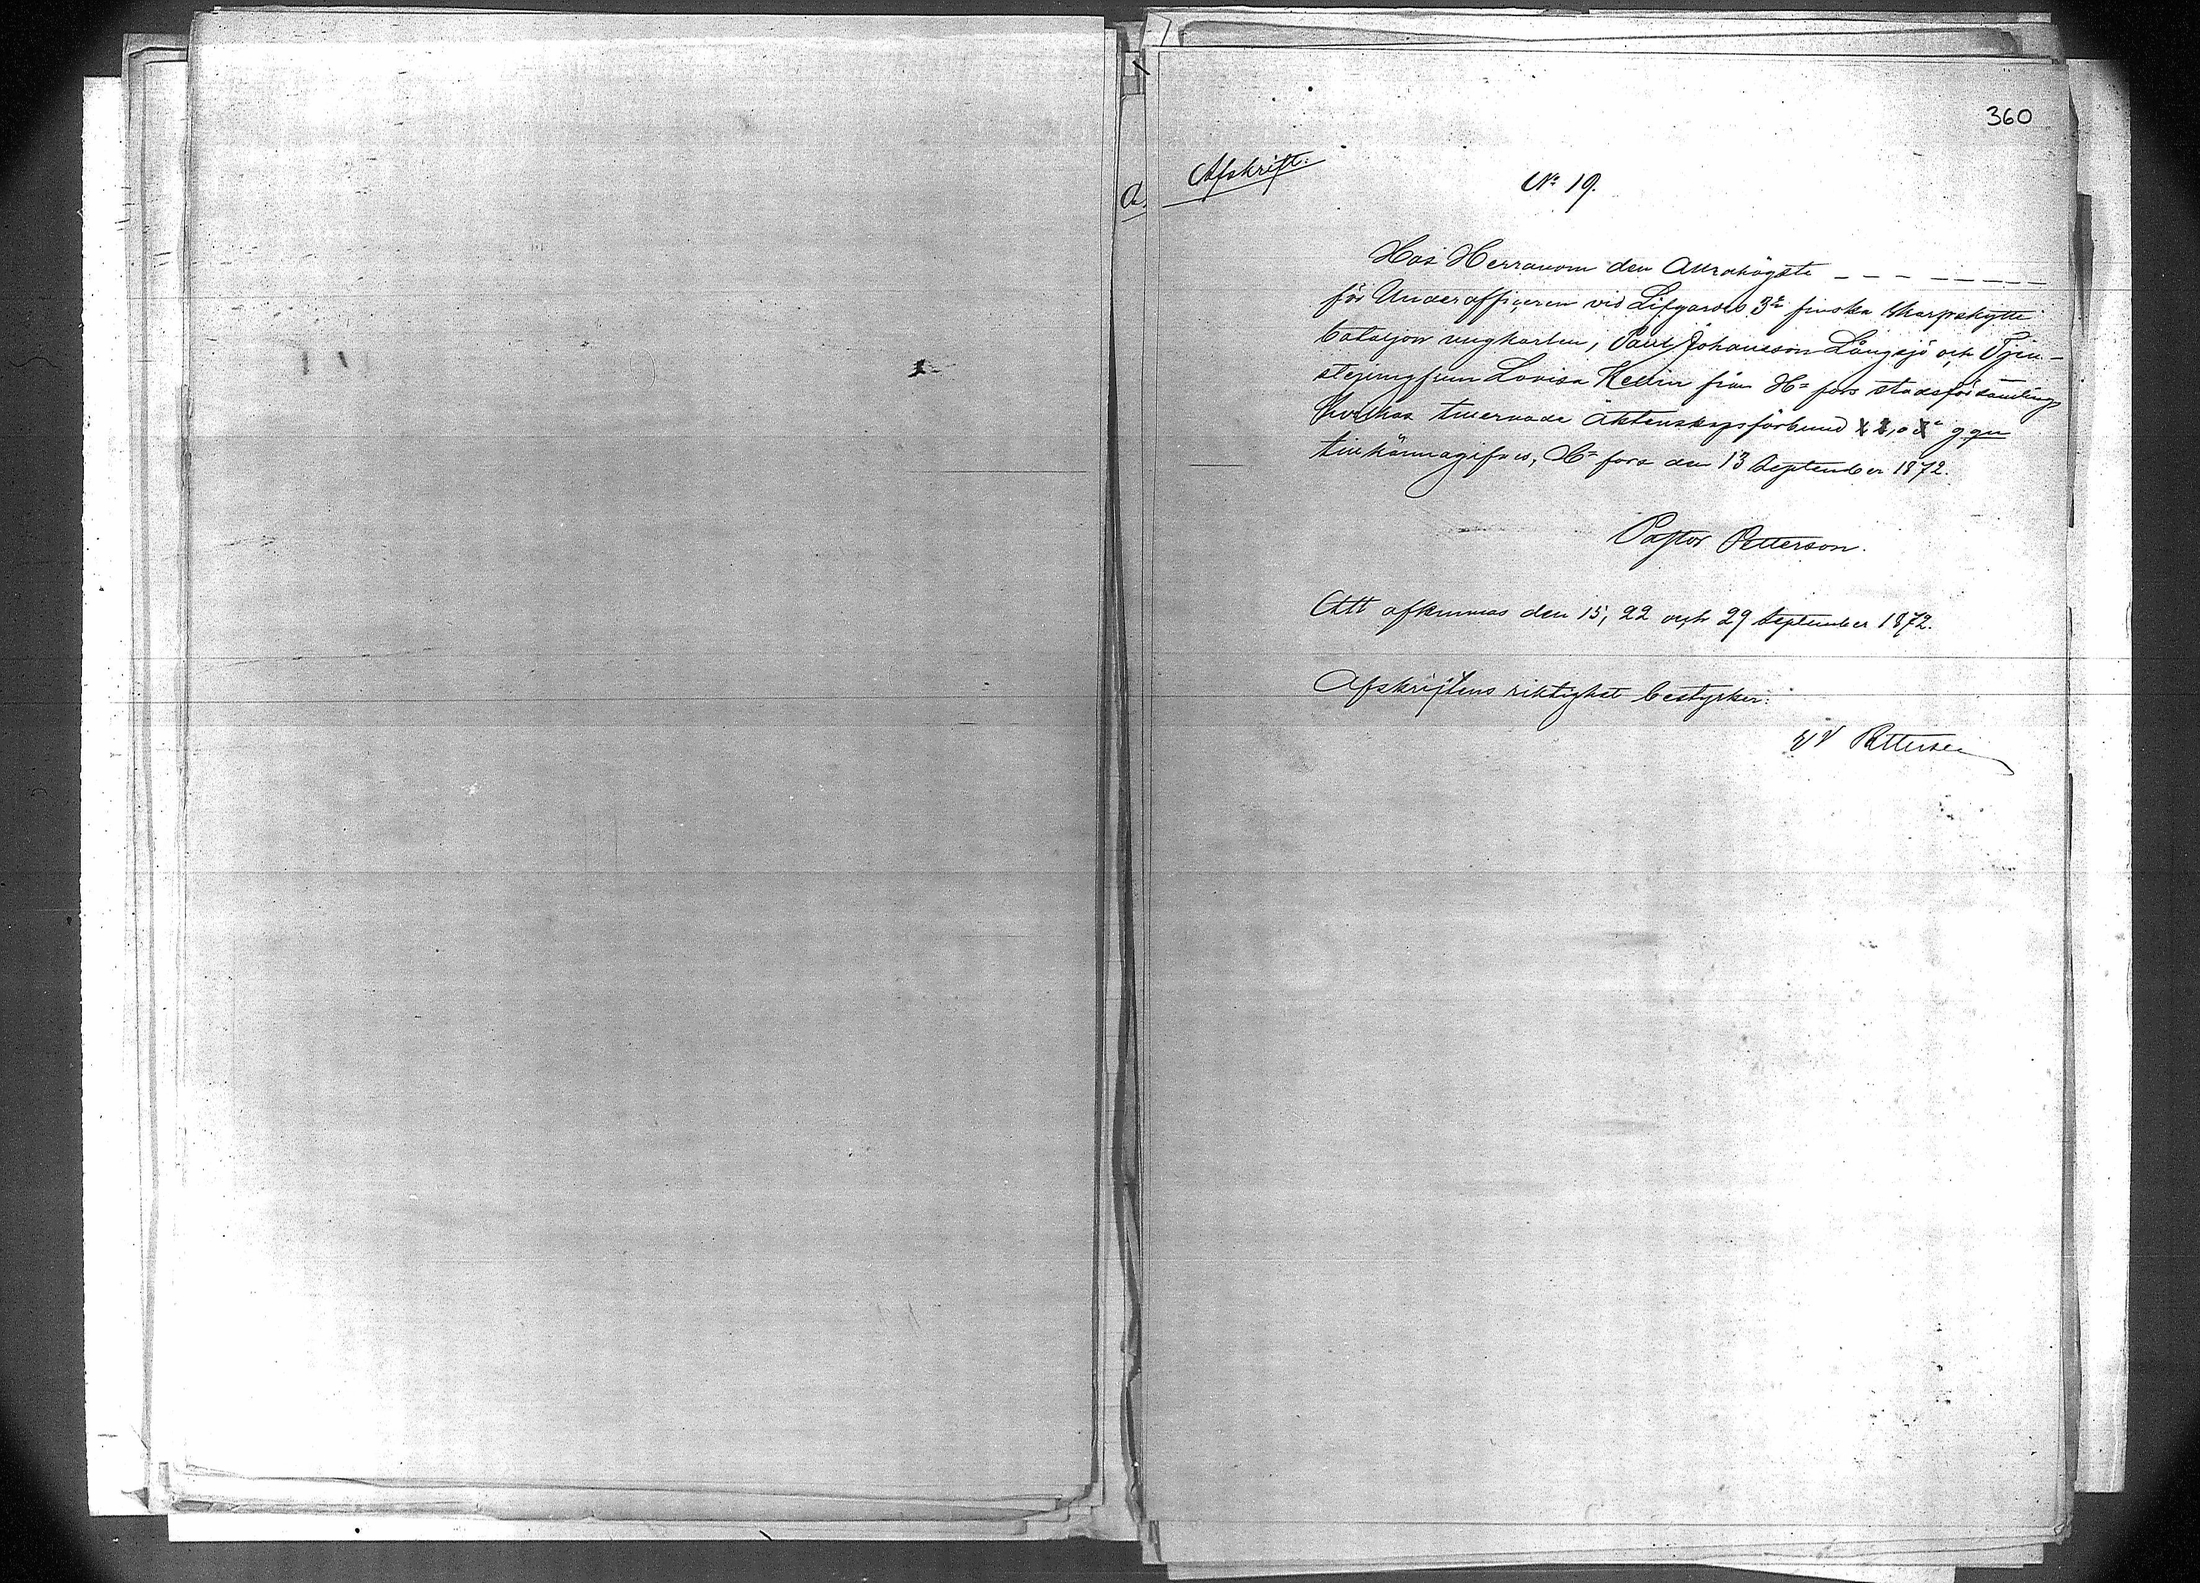 360
Afskrift.
N:o 19.
Hos Herranom den Allrahögste - - - - - - -
för Underofficeren vid Lifgardes 3e finska skarpskytte
bataljon ungkarlen, Paul Johansson Långsjö och Tjen-
stejungfrun Lovisa Kellin från H:fors stadsförsamling
hvilkas tillernade äktenskapsförbund 1, 2, o 3e ggn
tillkännagifves, H:fors den 13 September 1872.
Pastor Petterson.
Att afkunnas den 15, 22 och 29 September 1872.
Afskriftens riktighet bestyrker:
Petterson